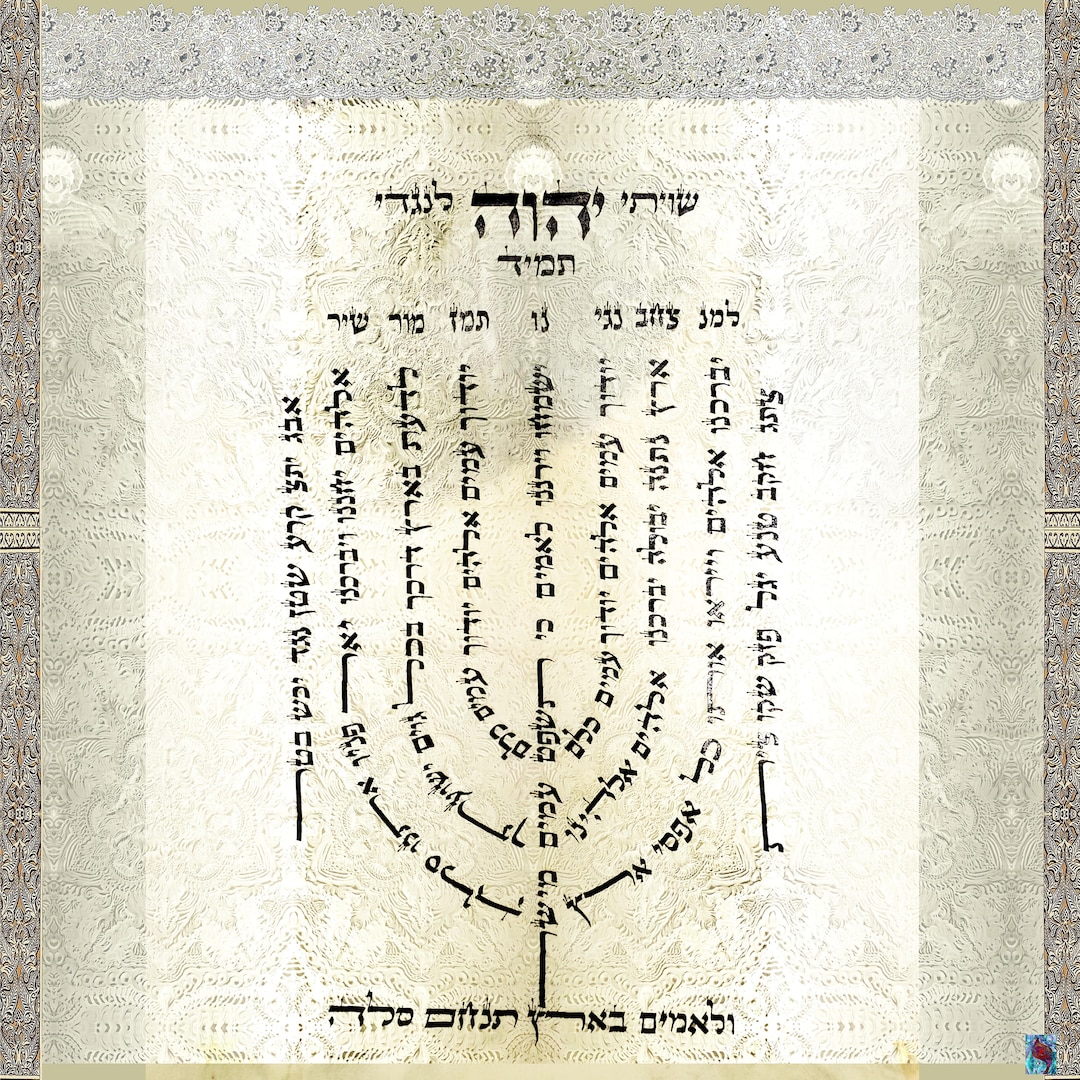 שויתי יהוה לנגדי
תמיד
למנ צחב נגי נו תמז מור שיר
צתג חקב טנע יגל פזק שקו צית
יברכנו אלהים וייראו אותו כל אפסי ארץ
ארץ נתנה יבולה יברכנו אלהים אלהינו
יודוך עמים אלהים יודוך עמים כלם
ישמחו וירננו לאמים כי תשפט עמים מישר
יודוך עמים אלהים יודוך עמים כלם
לדעת בארץ דרכך בכל גוים ישועתך
אלהים יחננו ויברכנו יאר פניו אתנו סלה
אבג יתצ קרע שטן נגד יכש בטר
ולאמים בארץ תנחם סלה